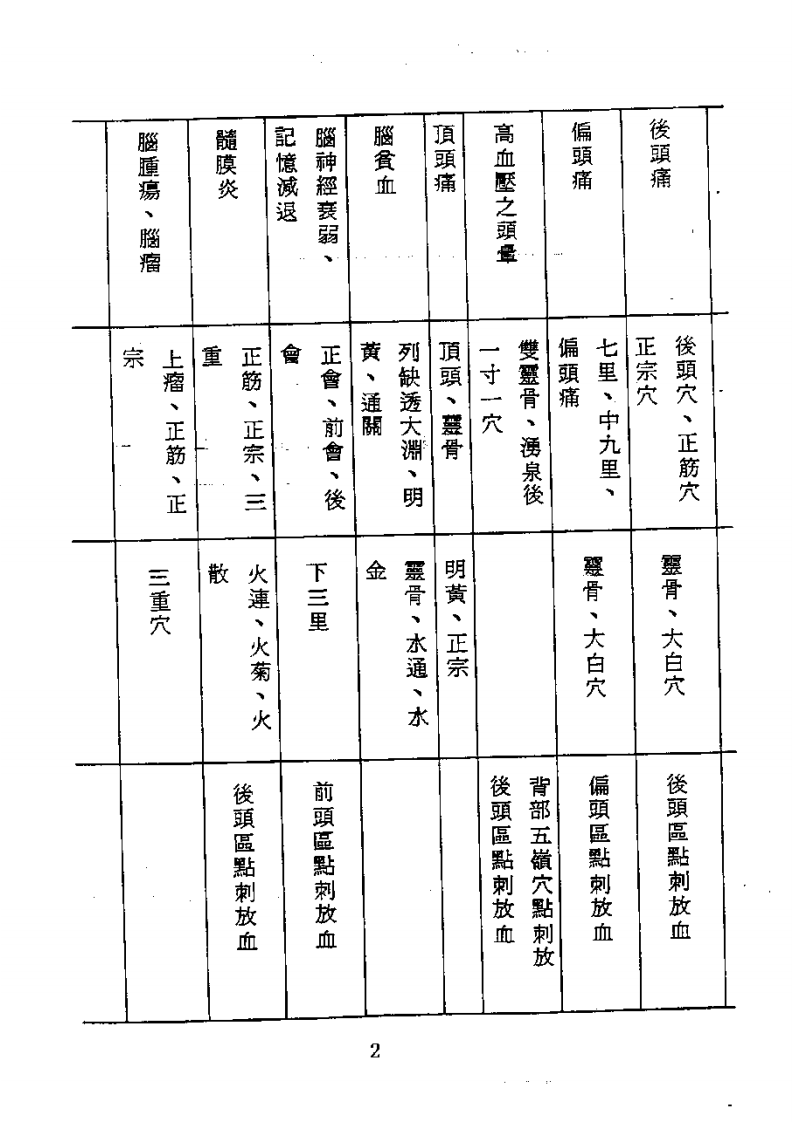 後頭痛
後頭穴、正筋穴
正宗穴
靈骨、大白穴
後頭區點刺放血
偏頭痛
七里、中九里、
偏頭痛
靈骨、大白穴
偏頭區點刺放血
高血壓之頭暈
雙靈骨、湧泉後
一寸一穴
背部五嶺穴點刺放
後頭區點刺放血
頂頭痛
頂頭、靈骨
明黃、正宗
腦貧血
列缺透大淵、明
黃、通關
靈骨、水通、水
金
腦神經衰弱、
記憶減退
正會、前會、後
會
下三里
前頭區點刺放血
髓膜炎
正筋、正宗、三
重
火連、火菊、火
散
後頭區點刺放血
腦腫瘍、腦瘤
上瘤、正筋、正
宗
三重穴
2